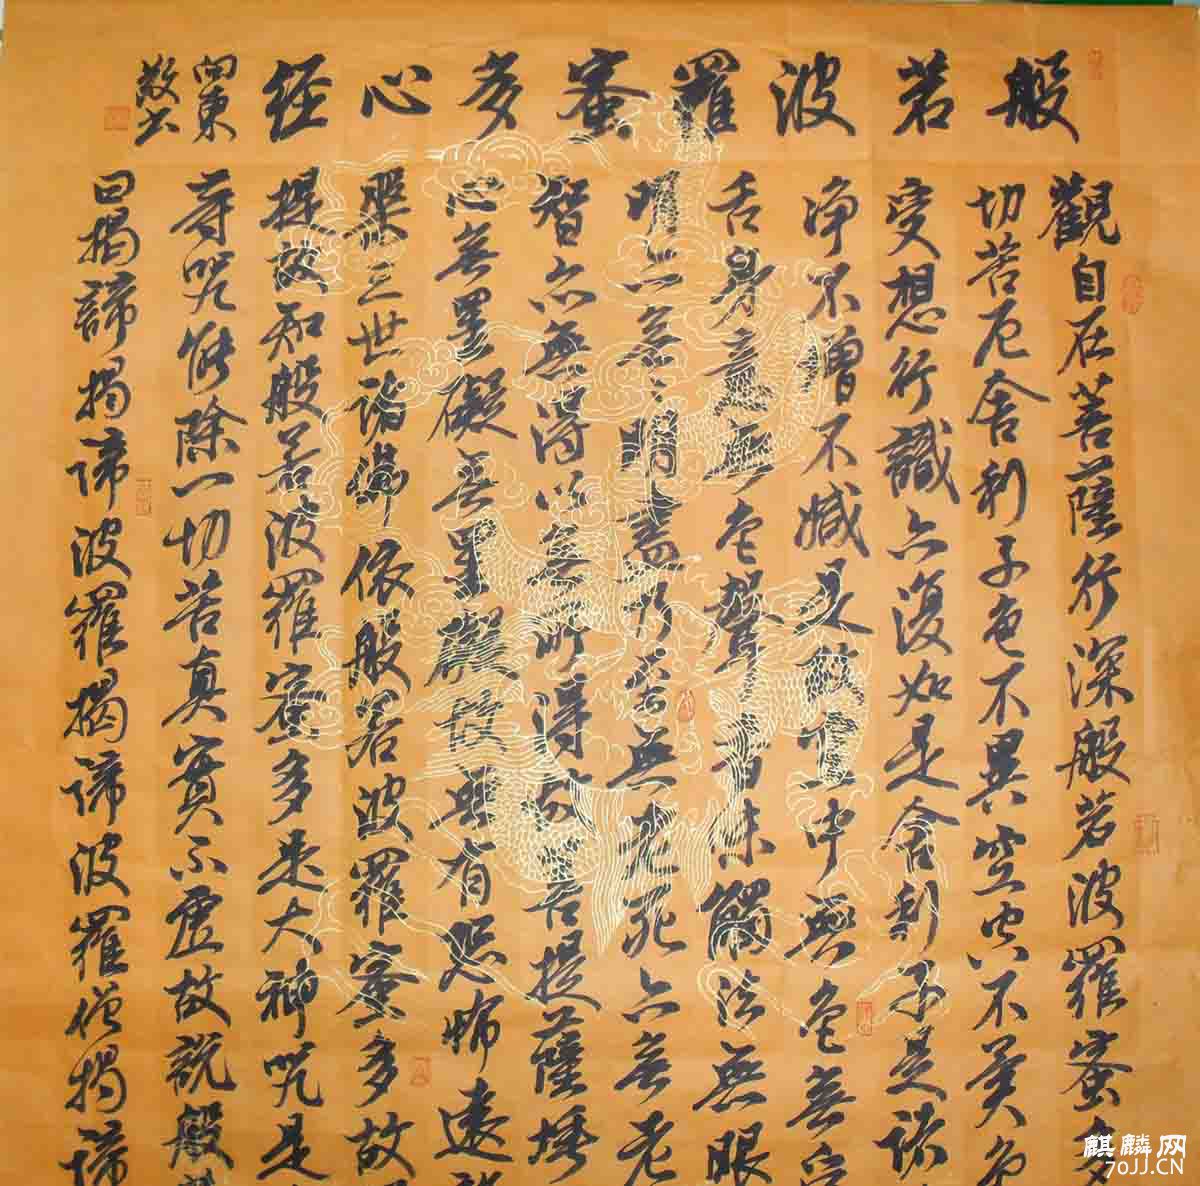 般若波羅蜜多心经
觀自在菩薩行深般若波羅蜜多
切苦厄舍利子色不異空空不異色
受想行識亦復如是舍利子是諸
净不增不減是故空中無色無受
舌身意無色聲香味觸法無眼
明亦無無明盡乃至無老死亦無老
智亦無得以無所得故菩提薩埵
心無罣礙無罣礙故無有恐怖遠
槃三世諸佛依般若波羅蜜多故
提故知般若波羅蜜多是大神咒是
等咒能除一切苦真實不虛故說般
曰揭諦揭諦波羅揭諦波羅僧揭諦
麒麟网
70JJ.CN